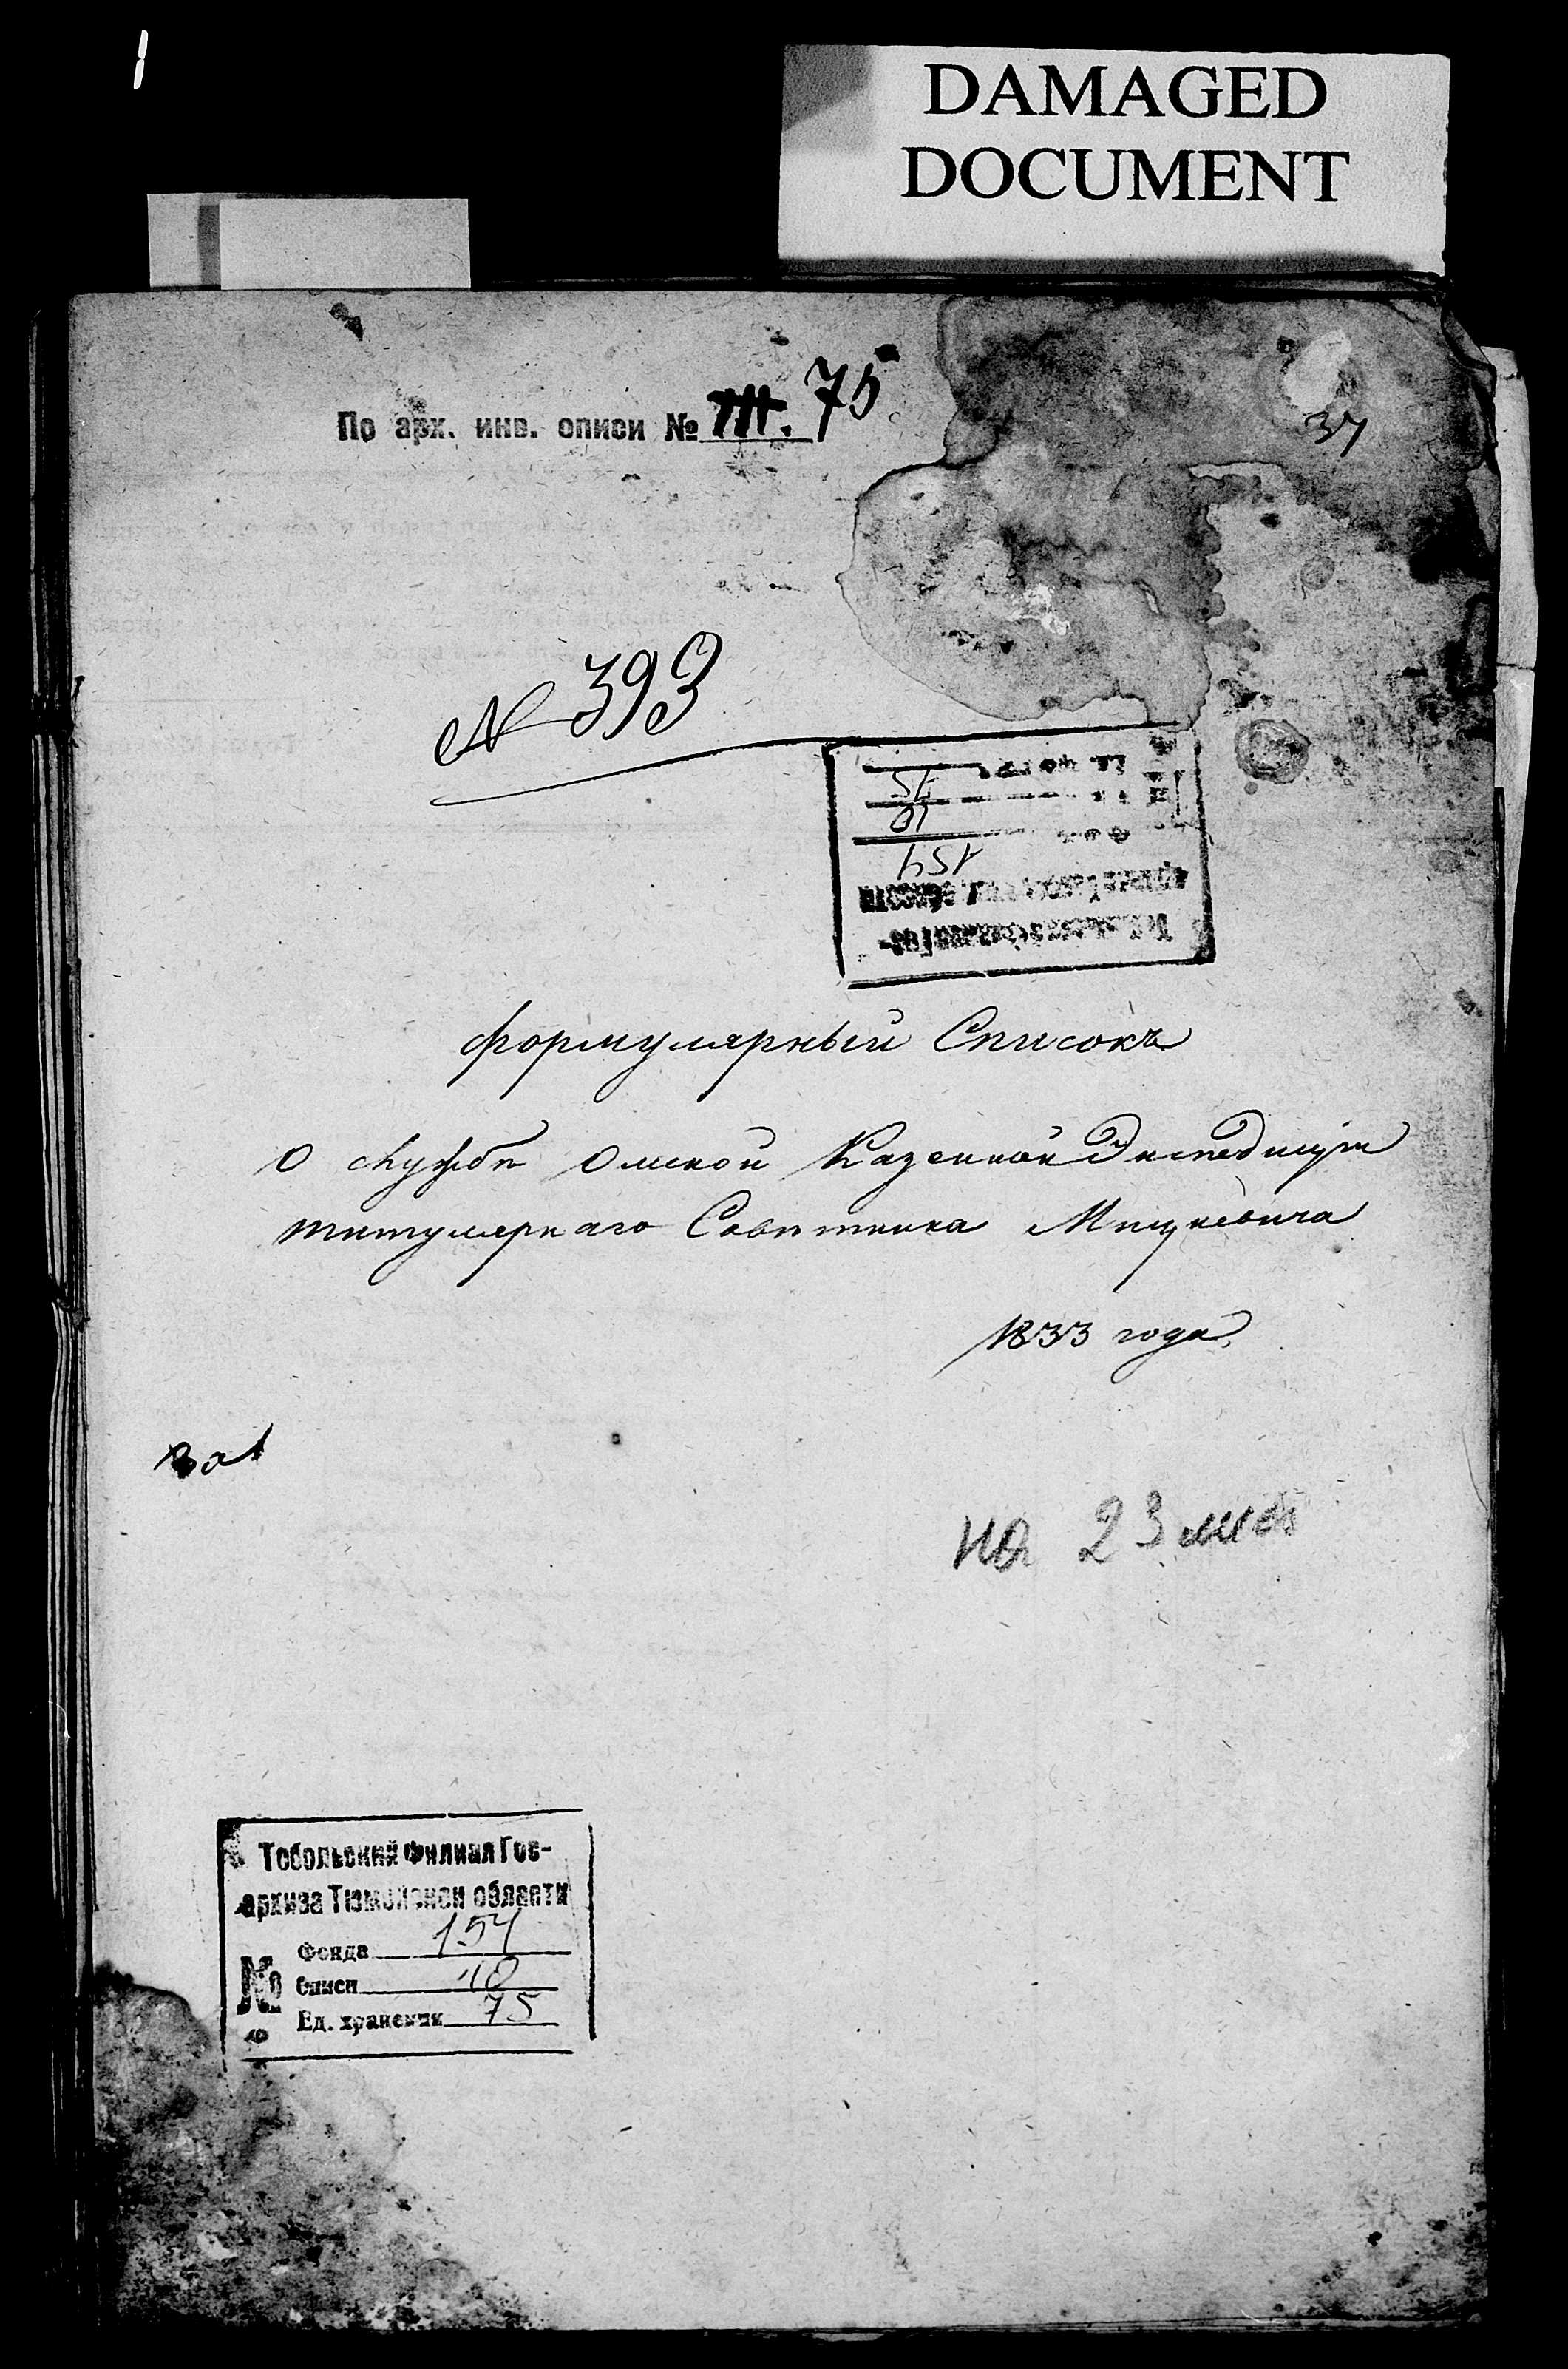 DAMAGED
DOCUMENT
По арх. инв. описи № 75
37
№ 393
75
10
154
формулярный Списокъ
о службѣ Омской Казенной Экспедиціи
титулярнаго Совѣтника Мицкевича
1833 года
на 23 лист
Тобольский Филиал Гос-
архива Тюменской области
№
Фонда 154
Описи 10
Ед. хранения 75